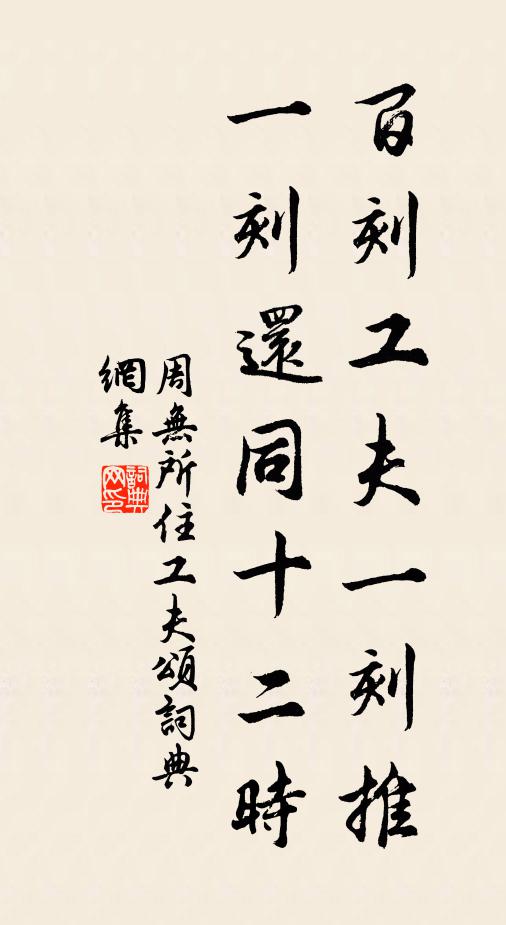 百刻工夫一刻推
一刻還同十二時
周無所住工夫頌詞典
網集
詞典
网印